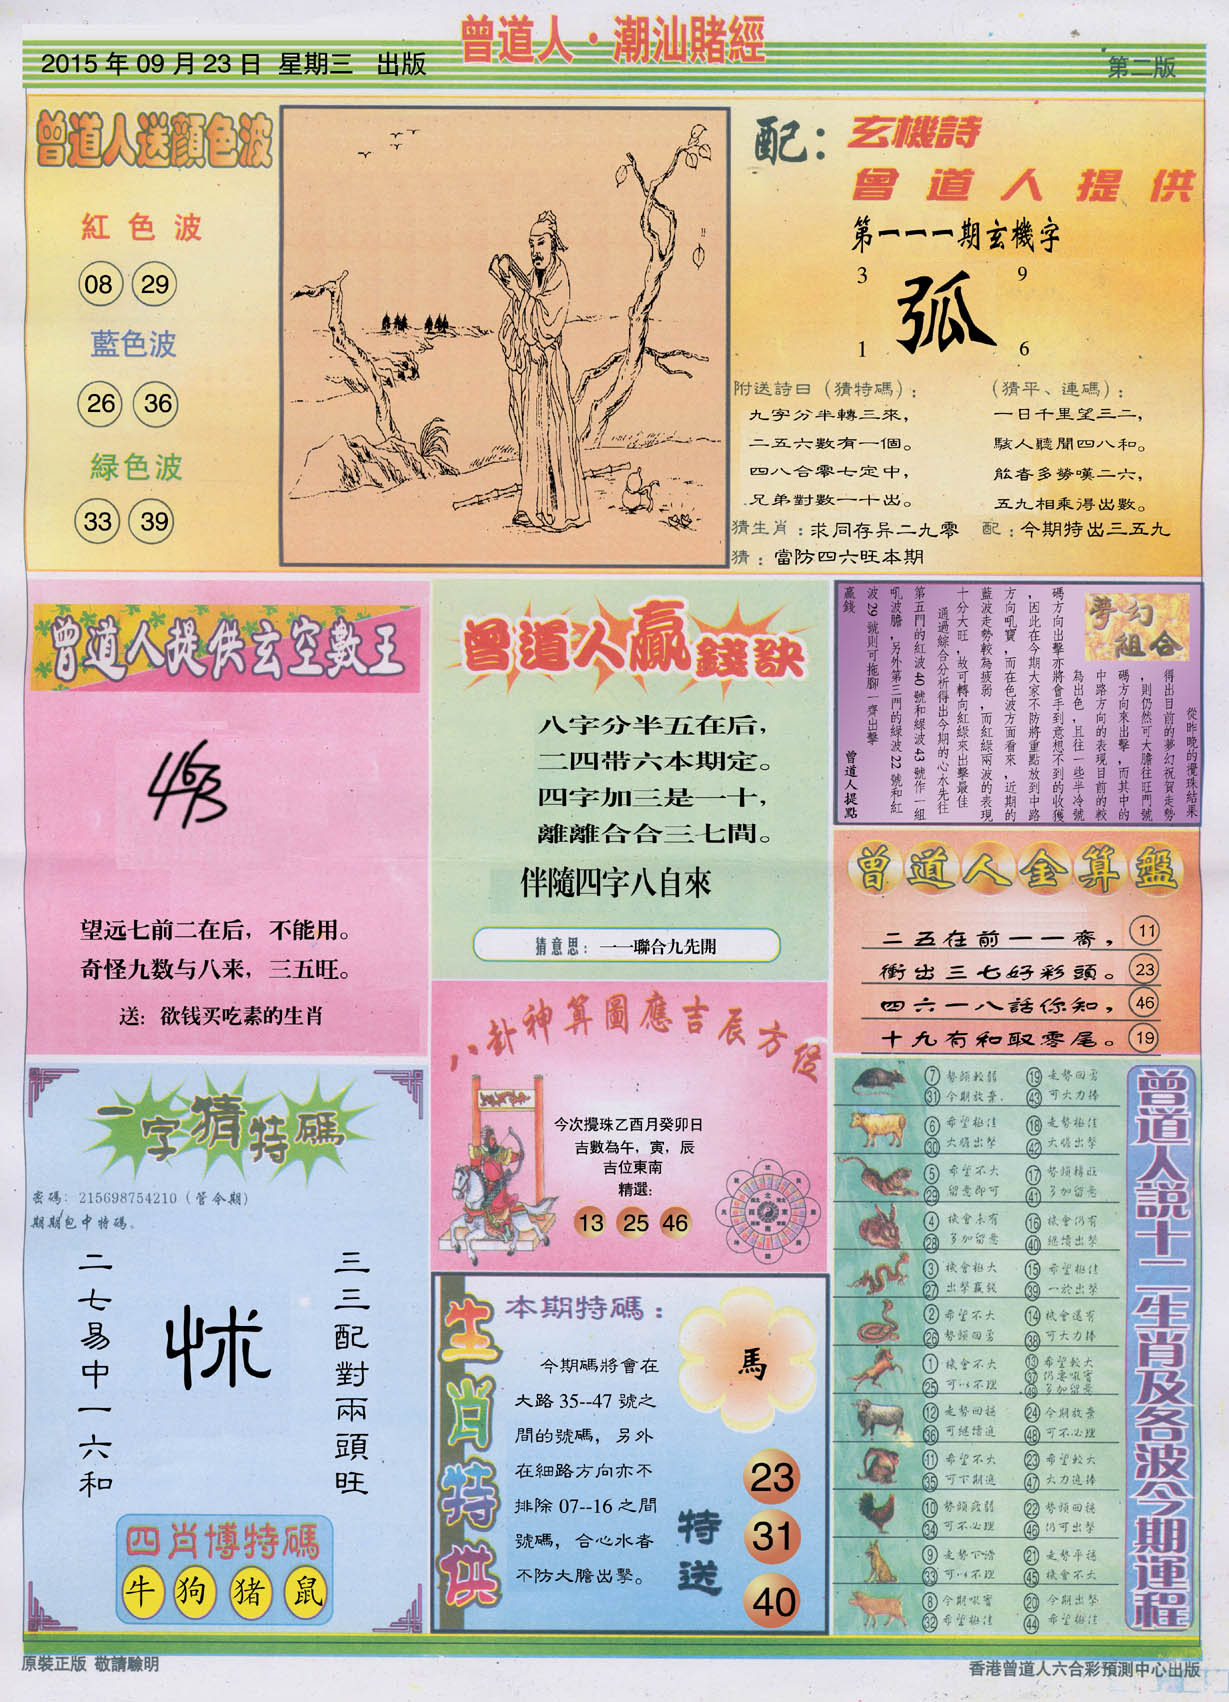 曾道人·潮汕賭經
2015 年 09 月 23 日 星期三 出版
第二版
曾道人送顏色波
紅色波
08 29
藍色波
26 36
緑色波
33 39
配：玄機詩
曾道人提供
第一一一期玄機字
3 9
弧
1 6
附送詩日（猜特碼）：
九字分半轉三來，
二五六數有一個。
四八合零七定中，
兄弟對數一十出。
（猜平、連碼）：
一日千里望三二，
駭人聽聞四八和。
能者多勞嘆二六，
五九相乘得出數。
猜生肖：求同存异二九零
配：今期特出三五九
猜：當防四六旺本期
曾道人提供玄空數王
463
望远七前二在后，不能用。
奇怪九数与八来，三五旺。
送：欲钱买吃素的生肖
曾道人贏錢訣
八字分半五在后，
二四带六本期定。
四字加三是一十，
離離合合三七間。
伴隨四字八自來
猜意思：一一聯合九先開
夢幻組合
從昨晚的攪珠結果
得出目前的夢幻祝賀走勢
，則仍然可大膽往旺門號
碼方向來出擊，而其中的
中路方向的表現目前的較
為出色，且往一些半冷號
碼方向出擊亦將會手到意想不到的收獲
，因此在今期大家不防將重點放到中路
方向吼寶，而在色波方面看來，近期的
藍波走勢較為疲弱，而紅綠兩波的表現
十分大旺，故可轉向紅綠來出擊最佳
通過綜合分析得出今期的心水先往
第五門的紅波40號和綠波43號作一組
吼波膽，另外第三門的綠波22號和紅
波29號則可拖腳一齊出擊
贏錢
曾道人提點
曾道人金算盤
二五在前一一齊， 11
衝出三七好彩頭。 23
四六一八話你知， 46
十九有和取零尾。 19
八卦神算圖應吉辰方位
今次攪珠乙酉月癸卯日
吉數為午，寅，辰
吉位東南
精選：
13 25 46
一字猜特碼
密碼：215698754210（管令期）
期期包中特碼。
二七易中一六和
怵
三三配對兩頭旺
四肖博特碼
牛 狗 猪 鼠
生肖特供
本期特碼：
今期碼將會在
大路 35--47 號之
間的號碼，另外
在細路方向亦不
排除 07--16 之間
號碼，合心水者
不防大膽出擊。
馬
特送
23
31
40
曾道人説十二生肖及各波今期運程
7 勢頭較弱 19 走勢回勇
31 今期放棄 43 可大力捧
6 希望極佳 18 走勢極佳
30 大膽出擊 42 大膽出擊
5 希望不大 17 勢頭轉旺
29 留意即可 41 多加留意
4 機會未有 16 機會仍有
28 多加留意 40 繼續出擊
3 機會極大 15 希望極佳
27 出擊贏錢 39 一於出擊
2 希望不大 14 機會還有
26 勢頭回勇 38 可大力捧
1 機會不大 13 希望較大
25 可以不理 37 仍要吼寶
49 多加留意
12 走勢回穩 24 今期放棄
36 可繼續追 48 可不必理
11 希望不大 23 希望較大
35 可下期追 47 大力追捧
10 勢頭疲弱 22 勢頭回穩
34 可不必理 46 仍可出擊
9 走勢下滑 21 走勢平穩
33 可以不理 45 機會不大
8 今期吼寶 20 今期出擊
32 希望極佳 44 希望極佳
原裝正版 敬請驗明
香港曾道人六合彩預測中心出版